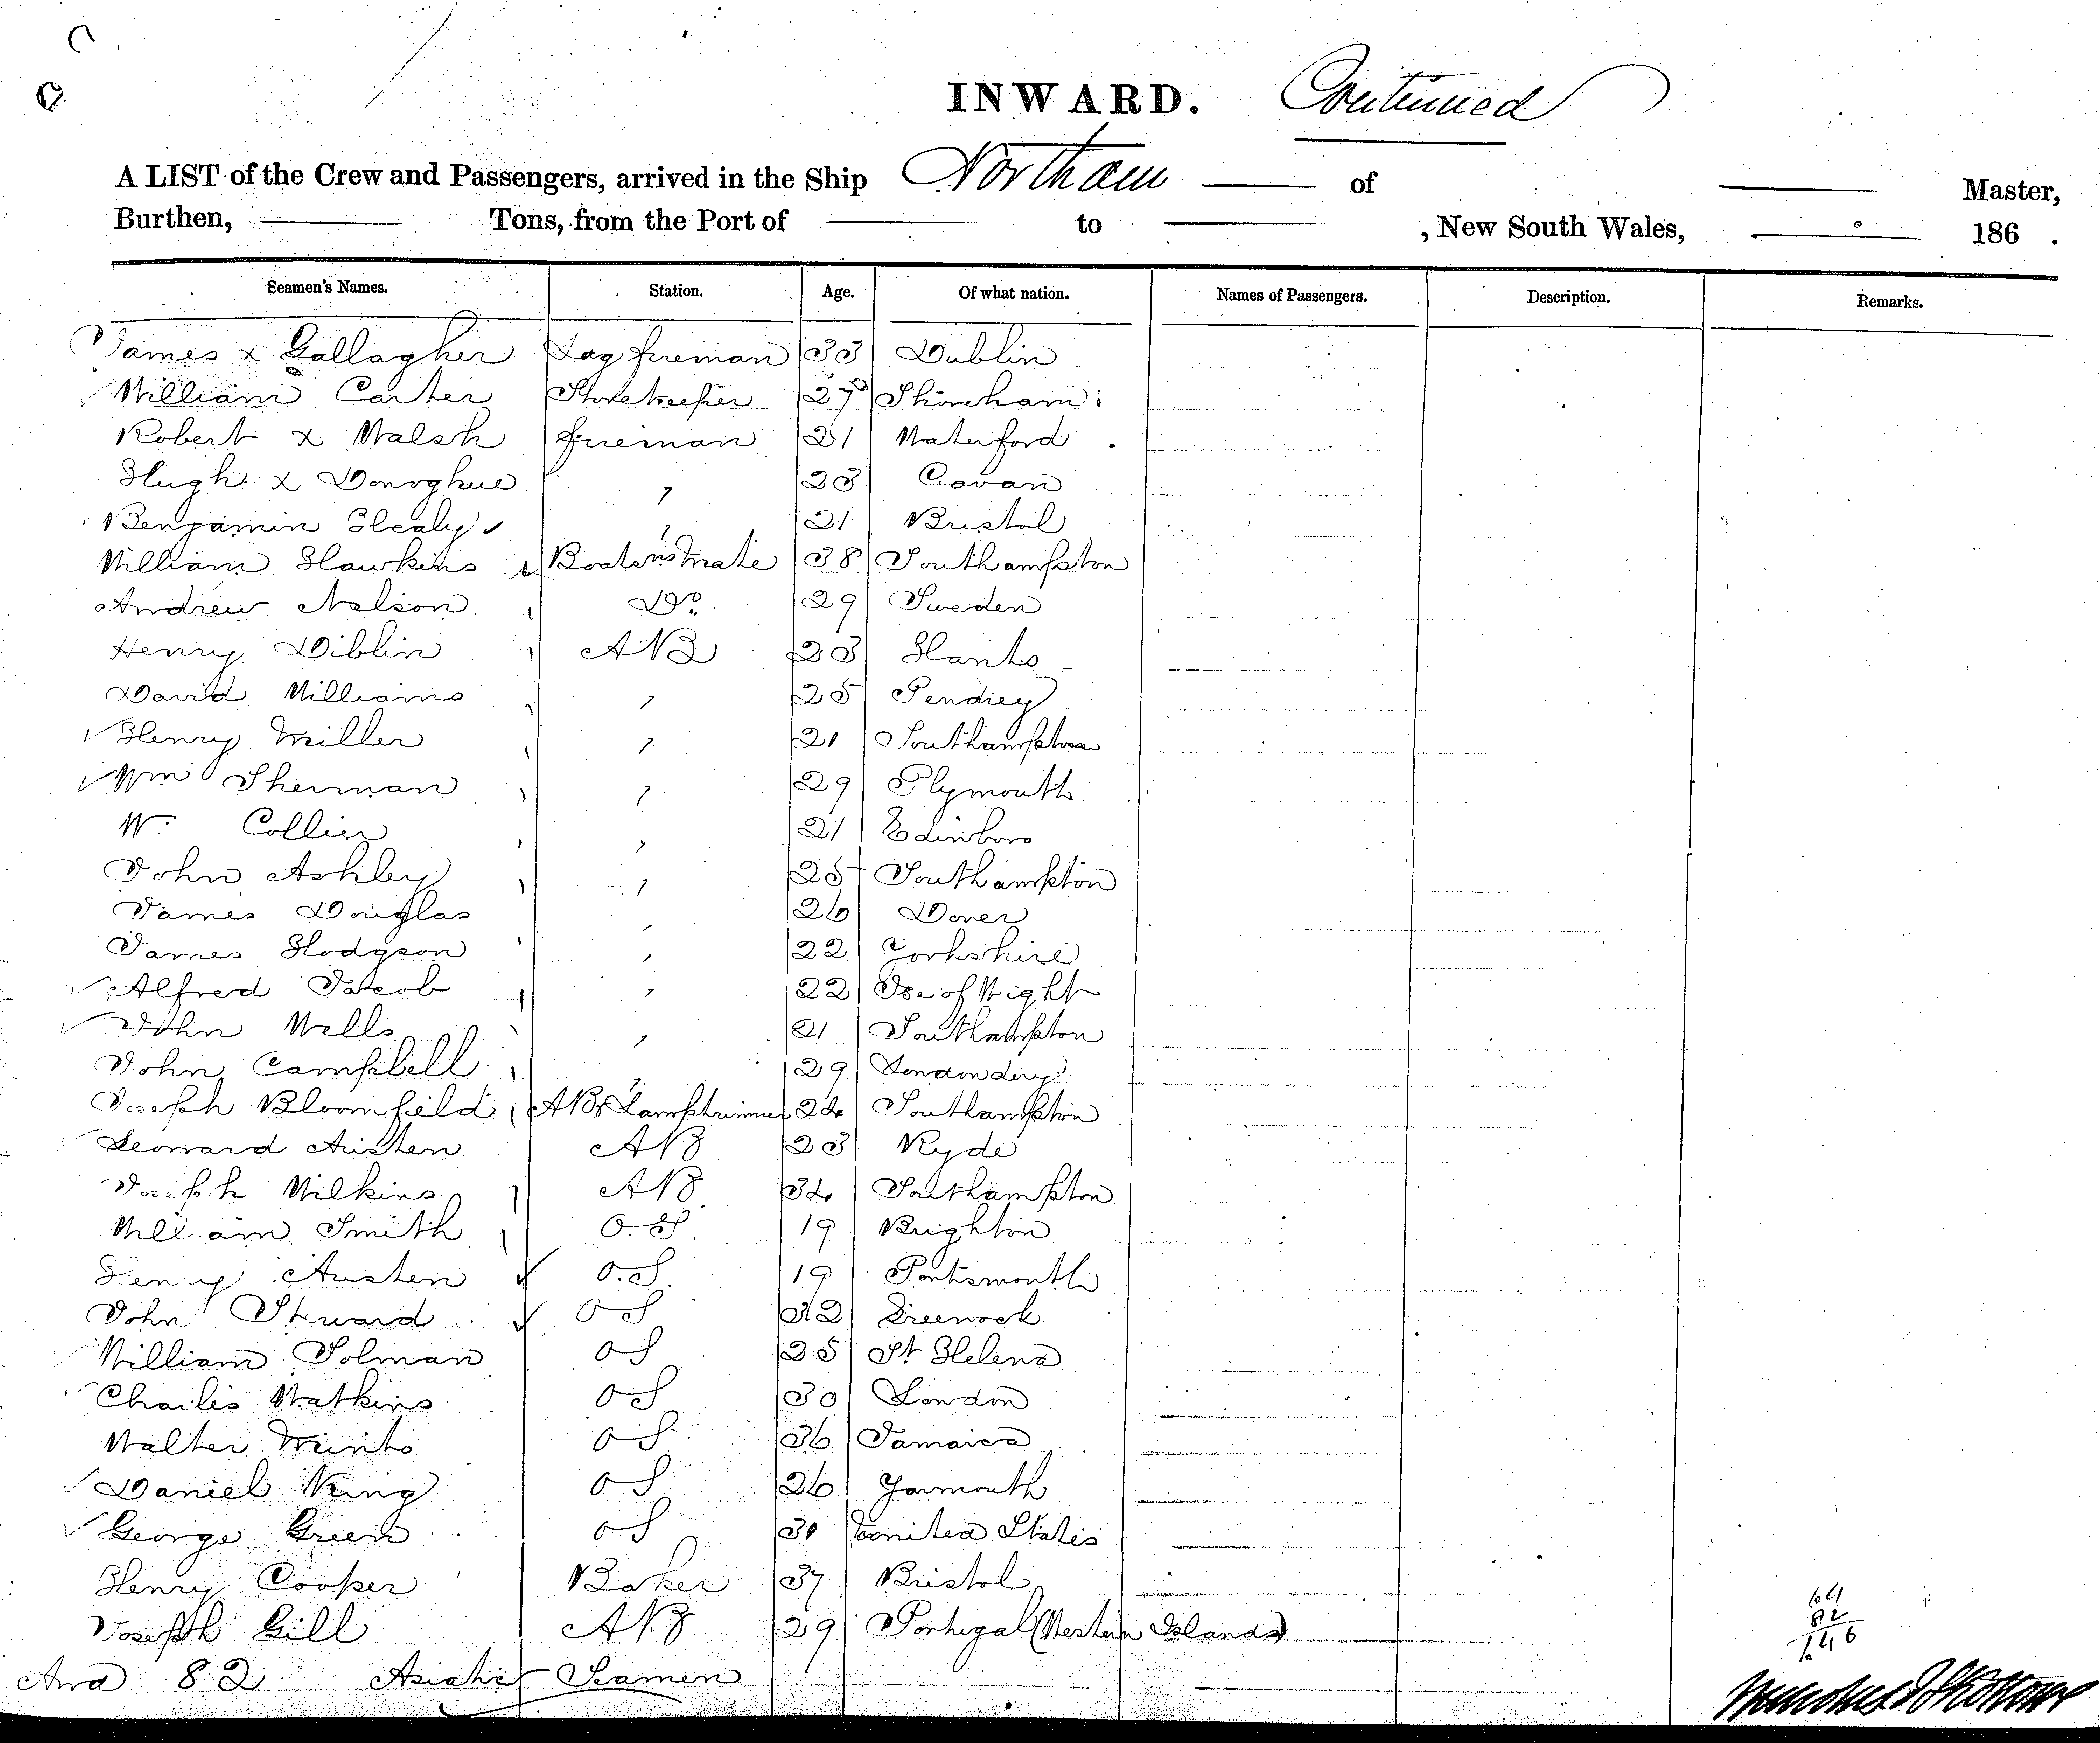 INWARD. Continued
A LIST of the Crew and Passengers, arrived in the Ship Northam — of — Master,
Burthen, — Tons, from the Port of — to — , New South Wales, — 186 .
Seamen's Names. Station. Age. Of what nation. Names of Passengers. Description. Remarks.
James x Gallagher Lag fireman 33 Dublin
William Carter Storekeeper 27 Shoreham
Robert x Walsh fireman 21 Waterford
Hugh x Donoghue " 23 Cavan
Benjamin Healy " 21 Bristol
William Hawkins Boatsns Mate 38 Southampton
Andrew Nelson Do 29 Sweden
Henry Diblin AB 23 Hants
David Williams " 25
Henry Miller " 21 Southampton
Wm Sherman " 29 Plymouth
W. Collier " 21 Edinboro
John Ashley " 25 Southampton
James Douglas " 26 Dover
James Hodgson " 22 Yorkshire
Alfred Jacob " 22 Ise of Wight
John Wells " 21 Southampton
John Campbell " 29 Londondery
Joseph Bloomfield AB & Lamptrimmer 24 Southampton
Leonard Austen AB 23 Ryde
Joseph Wilkins AB 34 Southampton
William Smith O.S 19 Brighton
Henry Austen O.S. 19 Portsmouth
John Steward OS 32 Greenock
William Solman OS 25 St Helena
Charles Watkins OS 30 London
Walter Minto OS 36 Jamaica
Daniel King OS 26 Yarmouth
George Green OS 30 United States
Henry Cooper Baker 37 Bristol
Joseph Gill AB 29 Portugal (Western Islands)
64
82
146
And 82 Asiatic Seamen